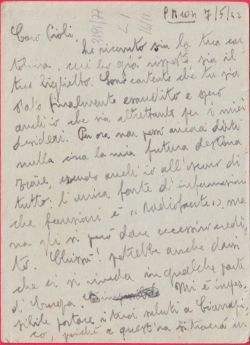 P.M. 7/5/42
Caro Gioli
ho ricevuto sia la tua car
tolina, cui ho già risposto, sia il
tuo biglietto. Sono contento che tu sia
stato finalmente esaudito e spero
anch'io che sia altrettanto per i miei
desideri. Per ora non posso ancora dirti
nulla circa la mia futura destina
zione, essendo anch'io all'oscuro di
tutto. L'unica fonte di informazioni
che funzioni è "Radiofante", ma
non gli si può dare eccessivo credi
to. Chissà! potrebbe anche darsi
che ci si riveda in qualche parte
d'Europa. Mi è impos
sibile portare i tuoi saluti a
co, perché a quest'ora si troverà in